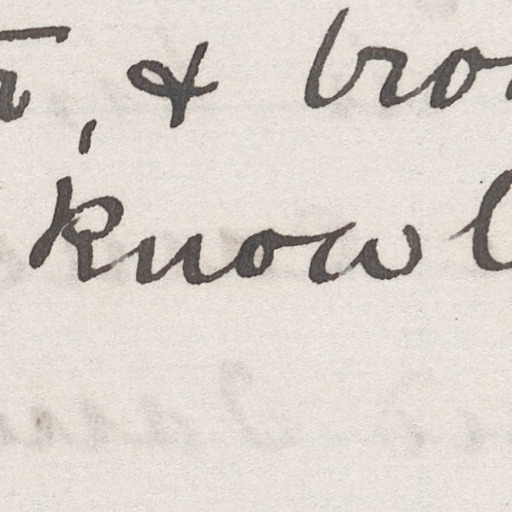 , & bro
know